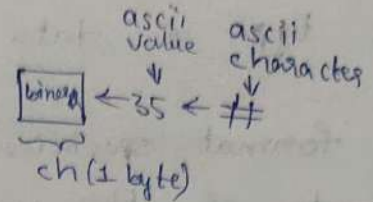 ascii value
ascii character
binary ← 35 ← #
ch (1 byte)